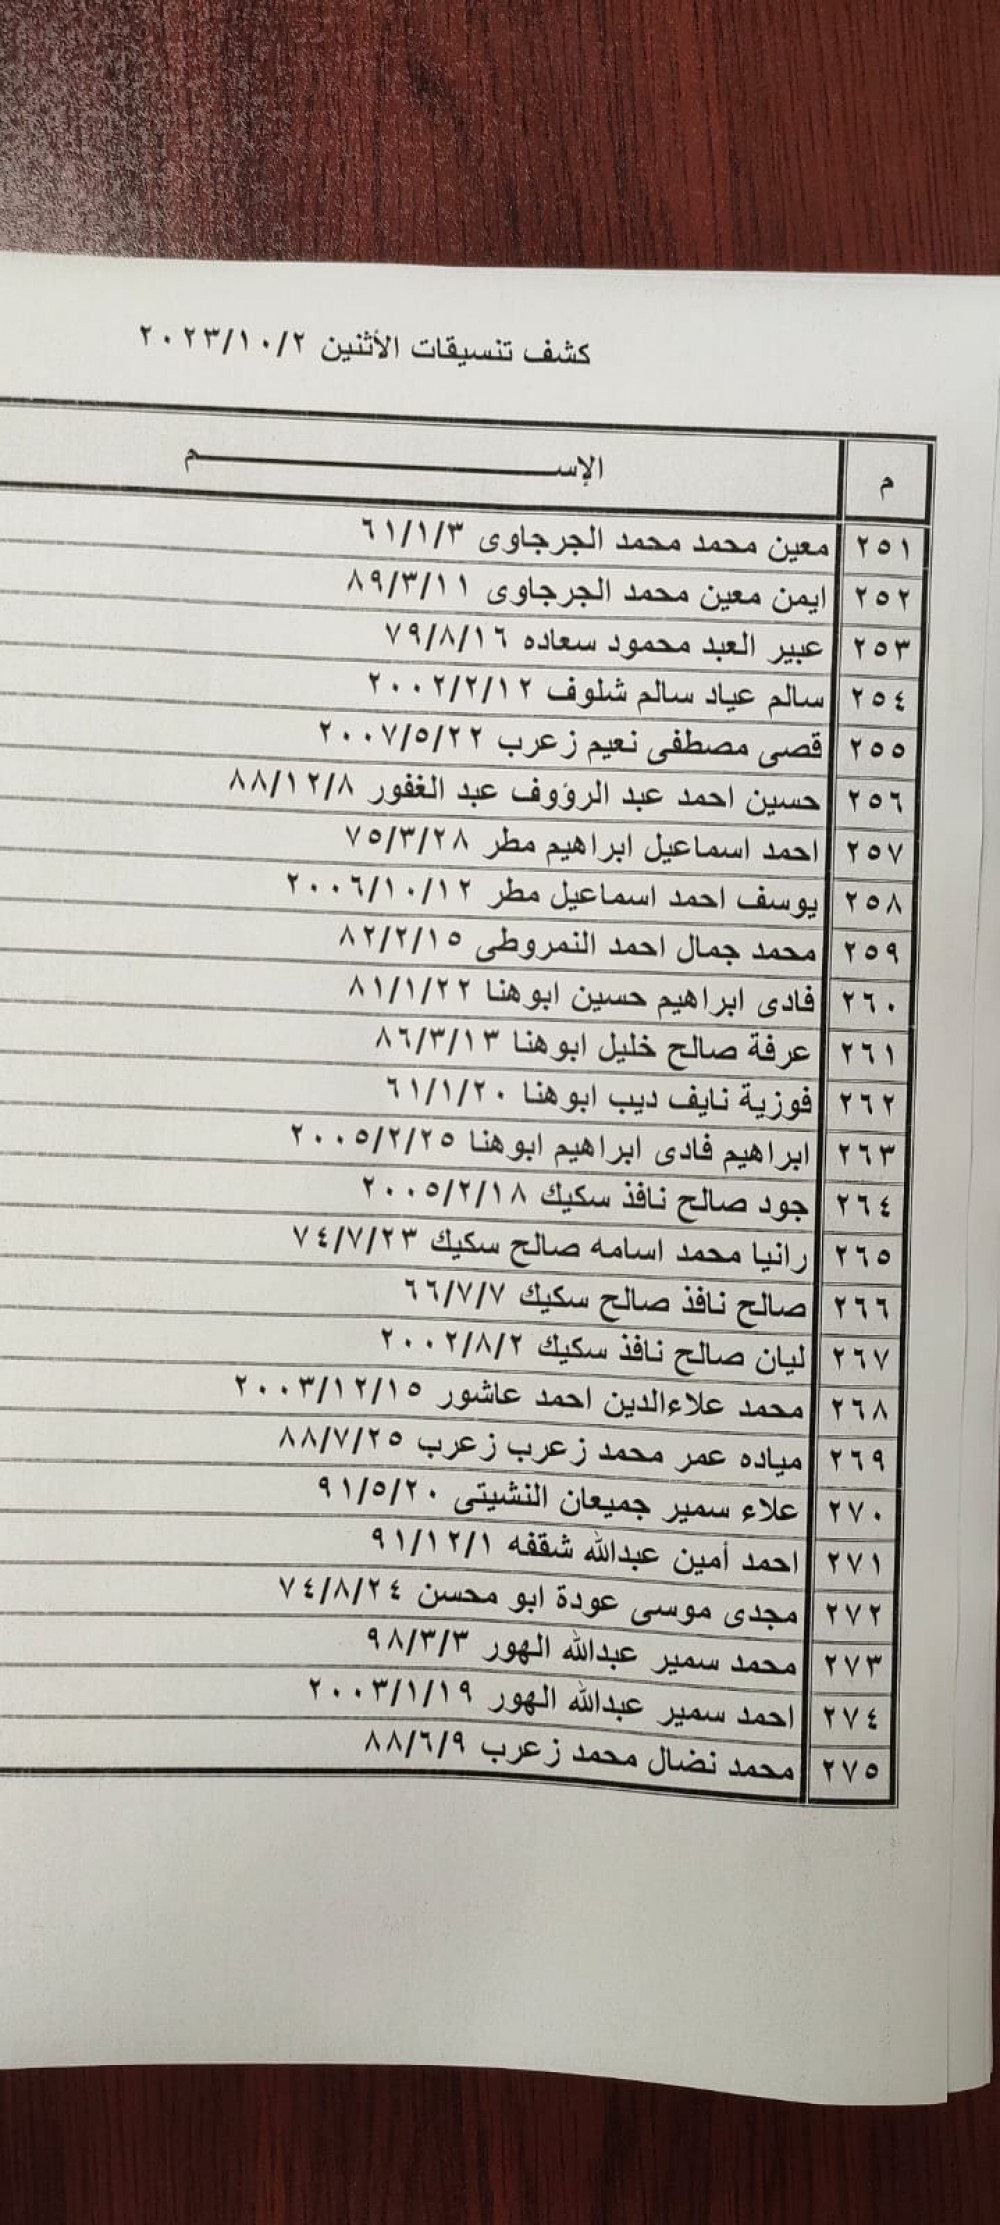 كشف تنسيقات الأثنين ٢٠٢٣/١٠/٢
م الإســــــــــــــم
٢٥١ معين محمد محمد الجرجاوى ٦١/١/٣
٢٥٢ ايمن معين محمد الجرجاوى ٨٩/٣/١١
٢٥٣ عبير العبد محمود سعاده ٧٩/٨/١٦
٢٥٤ سالم عياد سالم شلوف ٢٠٠٢/٢/١٢
٢٥٥ قصى مصطفى نعيم زعرب ٢٠٠٧/٥/٢٢
٢٥٦ حسين احمد عبد الرؤوف عبد الغفور ٨٨/١٢/٨
٢٥٧ احمد اسماعيل ابراهيم مطر ٧٥/٣/٢٨
٢٥٨ يوسف احمد اسماعيل مطر ٢٠٠٦/١٠/١٢
٢٥٩ محمد جمال احمد النمروطى ٨٢/٢/١٥
٢٦٠ فادى ابراهيم حسين ابوهنا ٨١/١/٢٢
٢٦١ عرفة صالح خليل ابوهنا ٨٦/٣/١٣
٢٦٢ فوزية نايف ديب ابوهنا ٦١/١/٢٠
٢٦٣ ابراهيم فادى ابراهيم ابوهنا ٢٠٠٥/٢/٢٥
٢٦٤ جود صالح نافذ سكيك ٢٠٠٥/٢/١٨
٢٦٥ رانيا محمد اسامه صالح سكيك ٧٤/٧/٢٣
٢٦٦ صالح نافذ صالح سكيك ٦٦/٧/٧
٢٦٧ ليان صالح نافذ سكيك ٢٠٠٢/٨/٢
٢٦٨ محمد علاءالدين احمد عاشور ٢٠٠٣/١٢/١٥
٢٦٩ مياده عمر محمد زعرب زعرب ٨٨/٧/٢٥
٢٧٠ علاء سمير جميعان النشيتى ٩١/٥/٢٠
٢٧١ احمد أمين عبدالله شقفه ٩١/١٢/١
٢٧٢ مجدى موسى عودة ابو محسن ٧٤/٨/٢٤
٢٧٣ محمد سمير عبدالله الهور ٩٨/٣/٣
٢٧٤ احمد سمير عبدالله الهور ٢٠٠٣/١/١٩
٢٧٥ محمد نضال محمد زعرب ٨٨/٦/٩